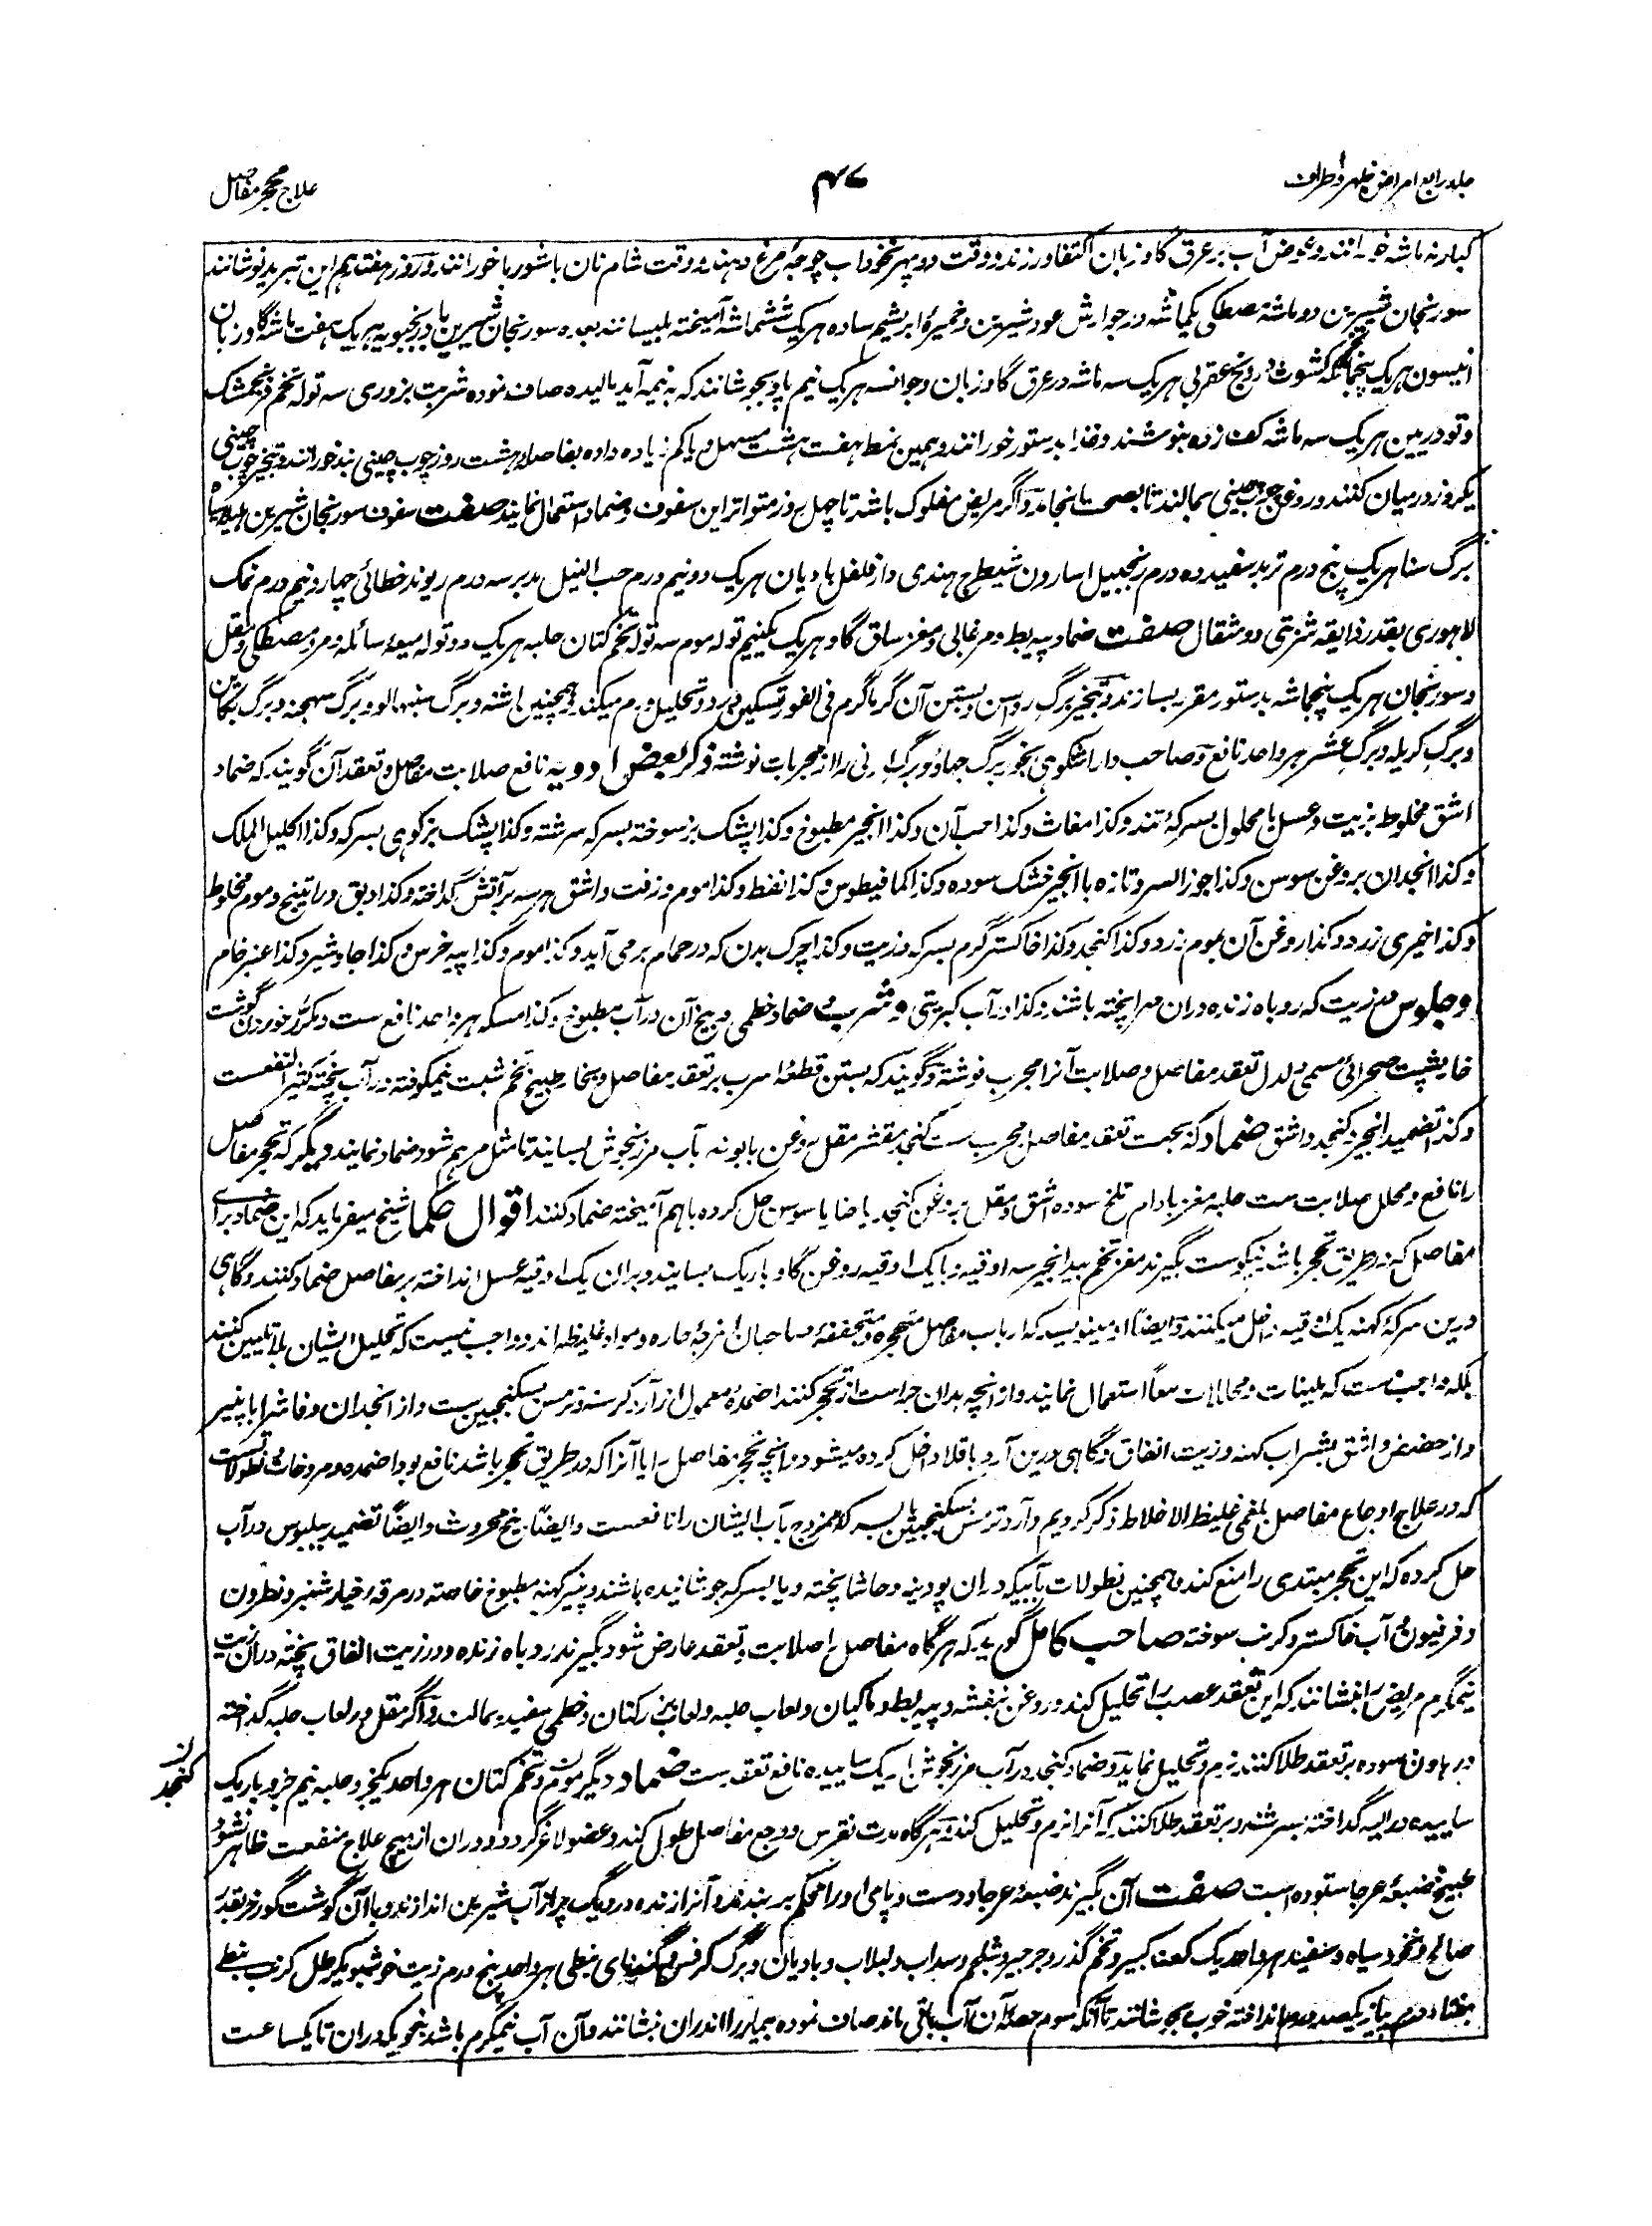 جلد رابع امراض ظهر و اطراف
۴۷
علاج تحجر مفاصل
کبار نه ماشه خورانند و عوض آب بر عرق گاوزبان اکتفا ورزند و وقت دوپهر نخوداب چوجهٔ مرغ دهند و وقت شام نان با شوربا خورانند و روز هفتدهم این تبرید نوشانند
سورنجان شیرین دو ماشه مصطکی یکماشه در جوارش عود شیرین و خمیرهٔ ابریشم ساده هریک ششماشه آمیخته بلیسانند بعده سورنجان شیرین بادرنجبویه هریک هفت ماشه گاوزبان
انیسون هریک پنجماشه تخم کشوث درونج عقربی هریک سه ماشه در عرق گاوزبان و جوانسه هریک نیم پاو بجوشانند که به نیمه آید مالیده صاف نموده شربت بزوری سه توله تخم فرنجمشک
و تودریین هریک سه ماشه کف زده بنوشند و غذا بدستور خورانند و بهمین نمط هفت هشت مسهل و یا کم زیاده داده بفاصله هشت روز چوب چینی نیز خورانند و تبخیر چوب چینی
یکروز درمیان کنند و روغن چوب چینی بمالند تا بصحت انجامد و اگر مریض مفلوک باشد تا چهل روز متواتر این سفوف و ضماد استعمال نمایند صفت سفوف سورنجان شیرین هلیله سیاه
برگ سنا هریک پنج درم تربد سفید ده درم زنجبیل اسارون شیطرج هندی دارفلفل بادیان هریک دو نیم درم حب النیل مدبر سه درم ریوند خطائی چهار و نیم درم نمک
لاهوری بقدر ذایقه شربتی دو مثقال صفت ضماد پیه بط و مرغابی و مغز ساق گاو هریک یکنیم توله موم سه توله تخم کتان حلبه هریک دو توله میعهٔ سائله و مر و مصطکی و مقل
و سورنجان هریک پنجماشه بدستور مقرر بسازند و تبخیر برگ راسن و بستن آن گرماگرم فی الفور تسکین درد و تحلیل ورم میکند و همچنین اشنه و برگ سنبهالو و برگ سهجنه و برگ بکاین
و برگ کریله و برگ عشر هر واحد نافع و صاحب دارا شکوهی بخور برگ جهاؤ و برگ ارنی را از مجربات نوشته ذکر بعض ادویه نافع صلابت مفاصل و تعقد آن گویند که ضماد
اشق مخلوط بزیت و عسل یا محلول بسرکهٔ تند و کذا مغاث و کذا حب آن و کذا انجیر مطبوخ و کذا پشک بز سوخته بسرکه سرشته و کذا پشک بز کوهی بسرکه و کذا اکلیل الملک
و کذا انجدان بروغن سوسن و کذا جوز السرو تازه با انجیر خشک سوده و کذا کمافیطوس و کذا نفط و کذا موم و زفت و اشق هر سه بر آتش گداخته و کذا دبق و راتینج و موم مخلوط
و کذا خیری زرد و کذا روغن آن بموم زرد و کذا کنجد و کذا خاکستر گرم بسرکه و زیت و کذا چرک بدن که در حمام برمی آید و کذا موم و کذا پیه خرس و کذا جاوشیر و کذا عنبر خام
و جلوس در زیت که روباه زنده دران مهرا پخته باشند و کذا در آب کبریتی و شرب و ضماد خطمی و بیخ آن در آب مطبوخ و کذا مسکه هر واحد نافع ست و مکرر خوردن گوشت
خارپشت صحرائی مسمی بدلدل تعقد مفاصل و صلابت آنرا مجرب نوشته و گویند که بستن قطعهٔ اسرب بر تعقد مفاصل و بخار طبیخ تخم شبت نیمکوفته در آب پخته کثیر النفعست
و کذا تضمید انجیر و کنجد و اشق ضماد که بجهت تعقد مفاصل مجرب ست کنجد مقشر مقل روغن بابونه بآب مرزنجوش بسایند تا مثل مرهم شود ضماد نمایند دیگر که تحجر مفاصل
را نافع و محلل صلابت ست حلبه مغز بادام تلخ سوده اشق و مقل بروغن کنجد یا حنا یا سوسن حل کرده باهم آمیخته ضماد کنند اقوال حکما شیخ میفرماید که این ضماد برای
مفاصل که در طریق تحجر باشد نیکوست بگیرند مغز تخم بیدانجیر سه اوقیه و با یک اوقیه روغن گاو باریک بسایند و بران یک اوقیه عسل انداخته بر مفاصل ضماد کنند و گاهی
درین سرکه کهنه یک اوقیه داخل میکنند و ایضاً او مینویسد که ارباب مفاصل متحجره و متجففه صاحبان امزجهٔ حاره و مواد غلیظه اند و واجب نیست که تحلیل ایشان بلا تلیین کنند
بلکه واجب ست که ملینات و محللات معاً استعمال نمایند و از انچه بدان حراست از تحجر کنند اضمدهٔ معمول از آرد کرسنه و ترمس بسکنجبین ست و از انجدان و فاشرا با پنیر
و از حضض و اشق بشراب کهنه و زیت انفاق و گاهی درین آرد باقلا داخل کرده میشود و انچه تحجر مفاصل را یا آنرا که در طریق تحجر باشد نافع بود اضمده و مروخات و نطولات ست
که در علاج اوجاع مفاصل بلغمی غلیظ الاخلاط ذکر کردیم و آرد ترمس بسکنجبین یا بسرکهٔ ممزوج بآب ایشان را نافعست و ایضاً بیخ محروث و ایضاً تضمید ببلبوس در آب
حل کرده که این تحجر مبتدی را منع کند و همچنین نطولات بآبیکه دران پودینه و حاشا پخته و یا بسرکه جوشانیده باشند و پنیر کهنه مطبوخ خاصته در مرقهٔ خیارشنبر و نطرون
و فرفیون و آب خاکستر و کرنب سوخته صاحب کامل گوید که هرگاه مفاصل را صلابت و تعقد عارض شود بگیرند روباه زنده و در زیت انفاق پخته دران زیت
نیمگرم مریض را بنشانند که این تعقد عصب را تحلیل کند و روغن بنفشه و پیه بط و ماکیان و لعاب حلبه و لعاب بزر کتان و خطمی سفید بمالند و اگر مقل در لعاب حلبه گداخته
در هاون سوده بر تعقد طلا کنند نرم و تحلیل نماید و ضماد کنجد در آب مرزنجوش باریک ساییده نافع تعقد ست ضماد دیگر موم و تخم کتان هر واحد یکجز و حلبه نیم جزو باریک
کنجد
ساییده در الیه گداخته بسرشند و بر تعقد طلا کنند که آنرا نرم و تحلیل کند و هرگاه مدت نقرس و وجع مفاصل طول کند و عضو لاغر گردد و دران از هیچ علاج منفعت ظاهر نشود
طبیخ ضبعهٔ عرجا ستوده است صفت آن بگیرند ضبعهٔ عرجا و دست و پای او را محکم بر بندند و آنرا زنده در دیگ پر از آب شیرین اندازند و با آن گوشت گورخر بقدر
صالح و نخود سیاه و سفید هر واحد یک کف کبیر و تخم گذر و جرجیر و شلجم و سداب و لبلاب و بادیان و برگ کرفس و گندنای نبطی هر واحد پنج درم زیت خوشبو یکرطل کرنب نبطی
هفتاد درم پیاز یکصد درم انداخته خوب بجوشانند تا آنکه سوم حصهٔ آن آب باقی ماند صاف نموده بیمار را اندران نشانند و آن آب نیمگرم باشد بنحویکه دران تا یکساعت